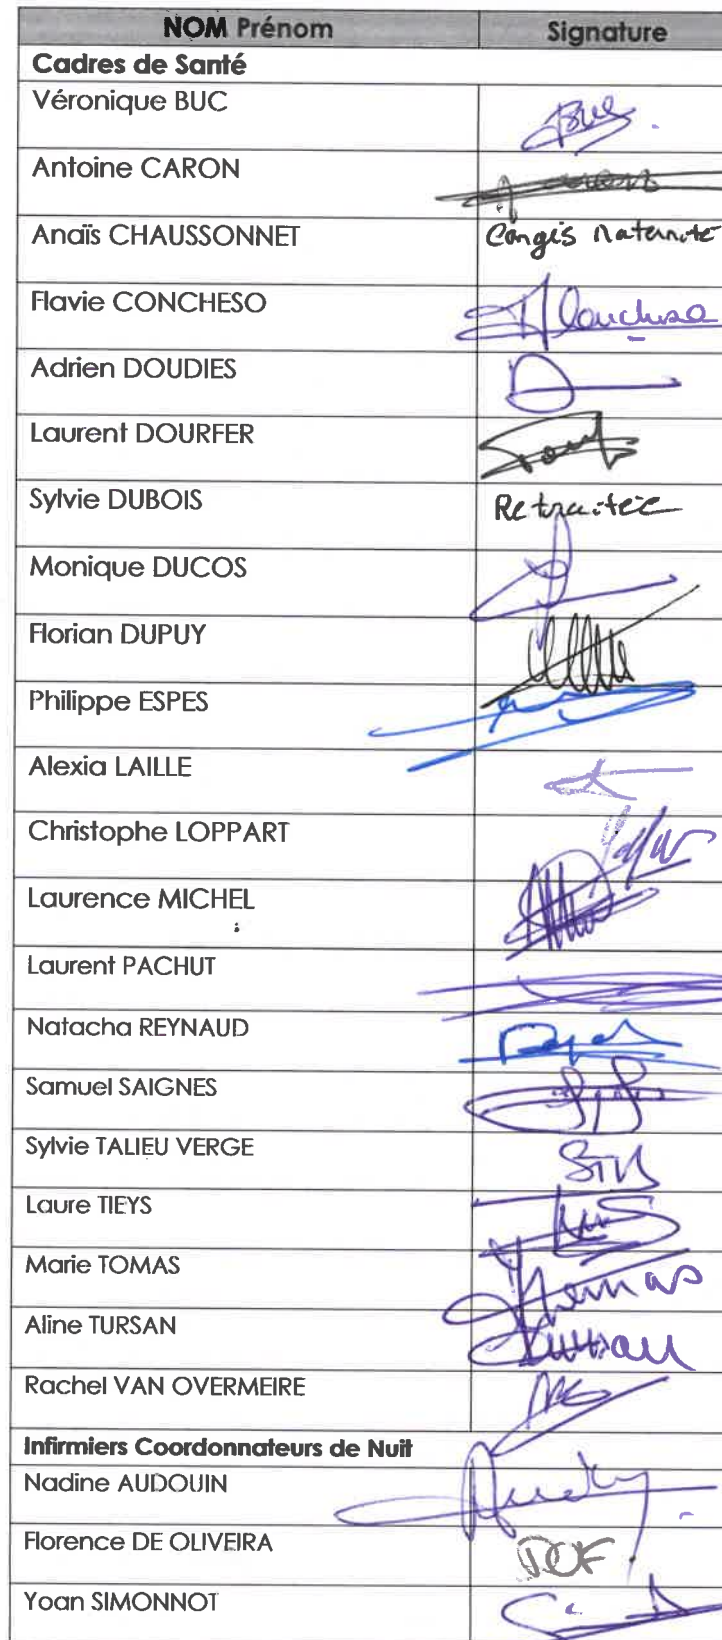 NOM Prénom Signature
Cadres de Santé
Véronique BUC
Antoine CARON
Anaïs CHAUSSONNET Congés Maternité
Flavie CONCHESO
Adrien DOUDIES
Laurent DOURFER
Sylvie DUBOIS Retraitée
Monique DUCOS
Florian DUPUY
Philippe ESPES
Alexia LAILLE
Christophe LOPPART
Laurence MICHEL
Laurent PACHUT
Natacha REYNAUD
Samuel SAIGNES
Sylvie TALIEU VERGE
Laure TIEYS
Marie TOMAS
Aline TURSAN
Rachel VAN OVERMEIRE
Infirmiers Coordonnateurs de Nuit
Nadine AUDOUIN
Florence DE OLIVEIRA DOF
Yoan SIMONNOT